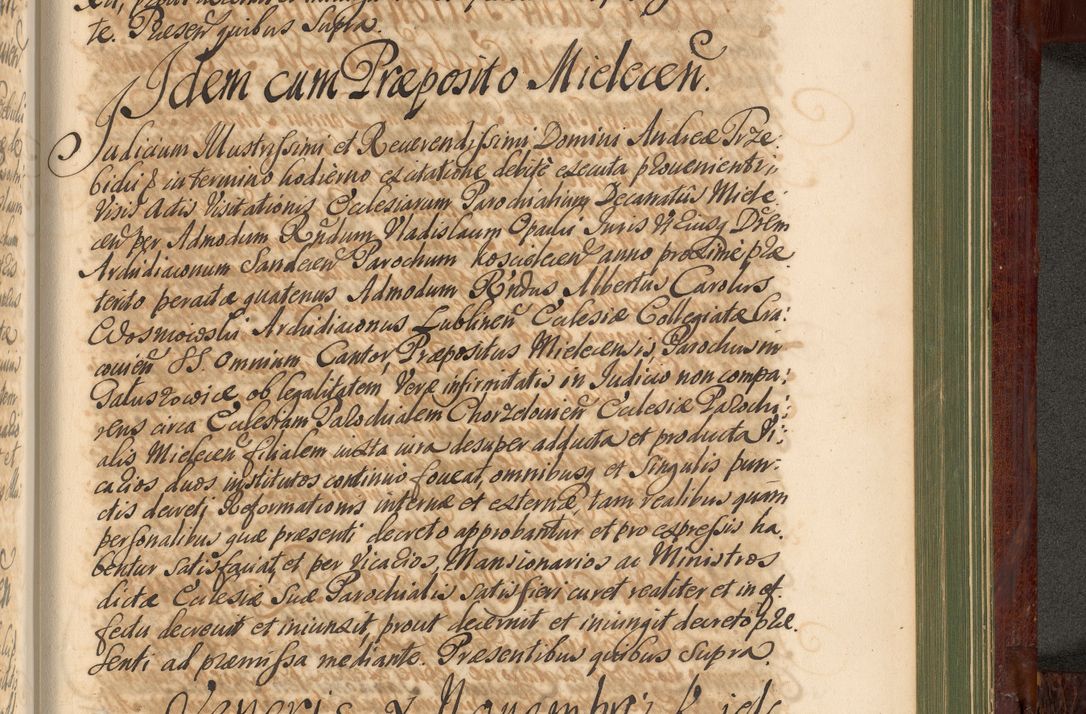 te. Præsen̄ quibus Supra.
Idem cum Præposito Mielecen̄.
Judicium Illustrissimi et Reuerendissimi Domini Andreæ Trze:
bicki in termino hodierno ex citatione debitè executa prouenienti,
Visis Actis Visitationis Ecclesiarum Parochialium Decanatûs Miele:
cen̄ per Admodum Rn̄dum Vladislaum Opacki Juris Vtriusq Drem
Archidiaconum Sandecen̄ Parochum Koscielecen̄ anno proxime præ
terito peractæ quatenus Admodum Rn̄dus Albertus Carolus
Wosmowski Archidiaconus Lublinen̄ Ecclesiæ Collegiatæ Cra:
couien̄ SS. Omnium Cantor, Præpositus Mielecensis, Parochus in
Galuszowice, ob legalitatem Veræ infirmitatis in Judicio non compa:
rens circa Ecclesiam Parochialem Chorzelouien̄ Ecclesiæ Parochi:
alis Mielecen̄ filialem iuxta iura desuper adducta et producta Vi:
carios duos institutos continuo foueat, omnibusq et Singulis pun:
ctis decreti Reformationis internæ et externæ, tam realibus quàm
personalibus quæ præsenti decreto approbantur et pro expressis ha:
bentur Satisfaciat, et per Vicarios, Mansionarios ac Ministros
dictæ Ecclesiæ Suæ Parochialis Satisfieri curet realiter et in ef:
fectu decreuit et iniunxit, prout decernit et iniungit decreto præ
senti ad præmissa mediante. Præsentibus quibus Supra.